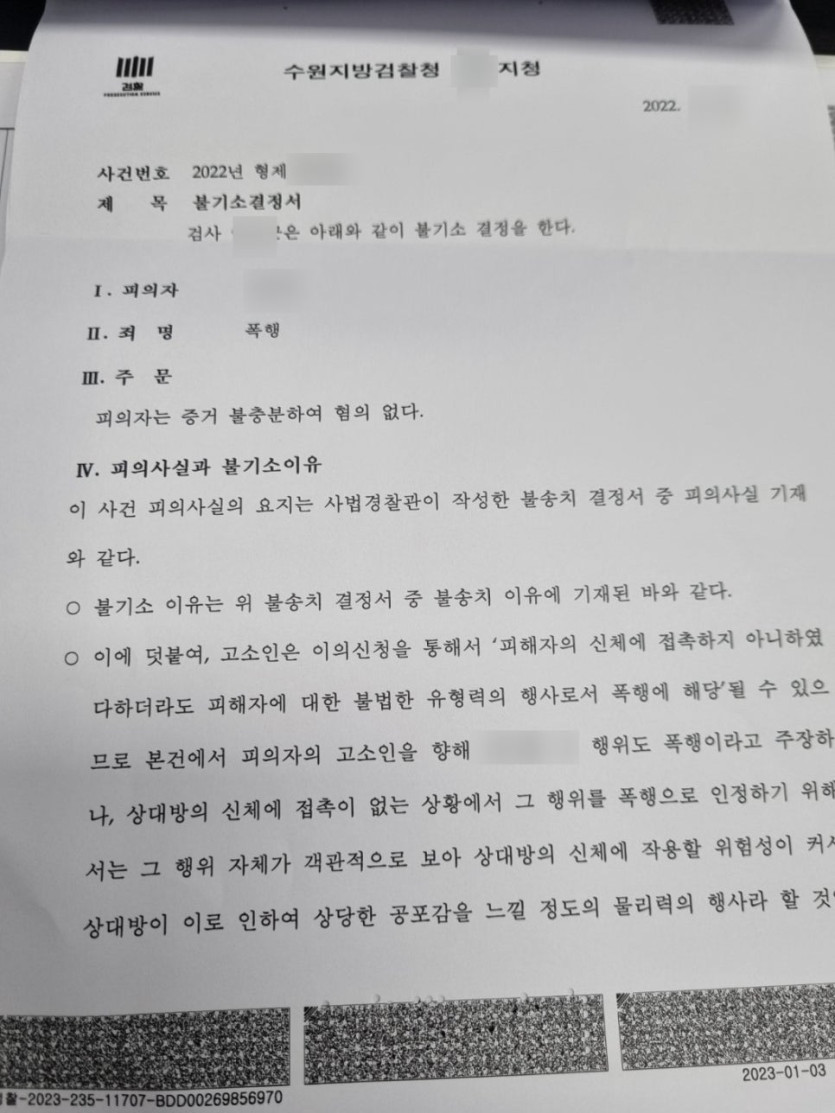 검찰
PROSECUTION SERVICE
수원지방검찰청 지청
2022.
사건번호 2022년 형제
제 목 불기소결정서
검사 은 아래와 같이 불기소 결정을 한다.
Ⅰ. 피의자
Ⅱ. 죄 명 폭행
Ⅲ. 주 문
피의자는 증거 불충분하여 혐의 없다.
Ⅳ. 피의사실과 불기소이유
이 사건 피의사실의 요지는 사법경찰관이 작성한 불송치 결정서 중 피의사실 기재
와 같다.
○ 불기소 이유는 위 불송치 결정서 중 불송치 이유에 기재된 바와 같다.
○ 이에 덧붙여, 고소인은 이의신청을 통해서 ‘피해자의 신체에 접촉하지 아니하였
다하더라도 피해자에 대한 불법한 유형력의 행사로서 폭행에 해당’될 수 있으
므로 본건에서 피의자의 고소인을 향해 행위도 폭행이라고 주장하
나, 상대방의 신체에 접촉이 없는 상황에서 그 행위를 폭행으로 인정하기 위해
서는 그 행위 자체가 객관적으로 보아 상대방의 신체에 작용할 위험성이 커서
상대방이 이로 인하여 상당한 공포감을 느낄 정도의 물리력의 행사라 할 것
2023-01-03
찰-2023-235-11707-BDD00269856970